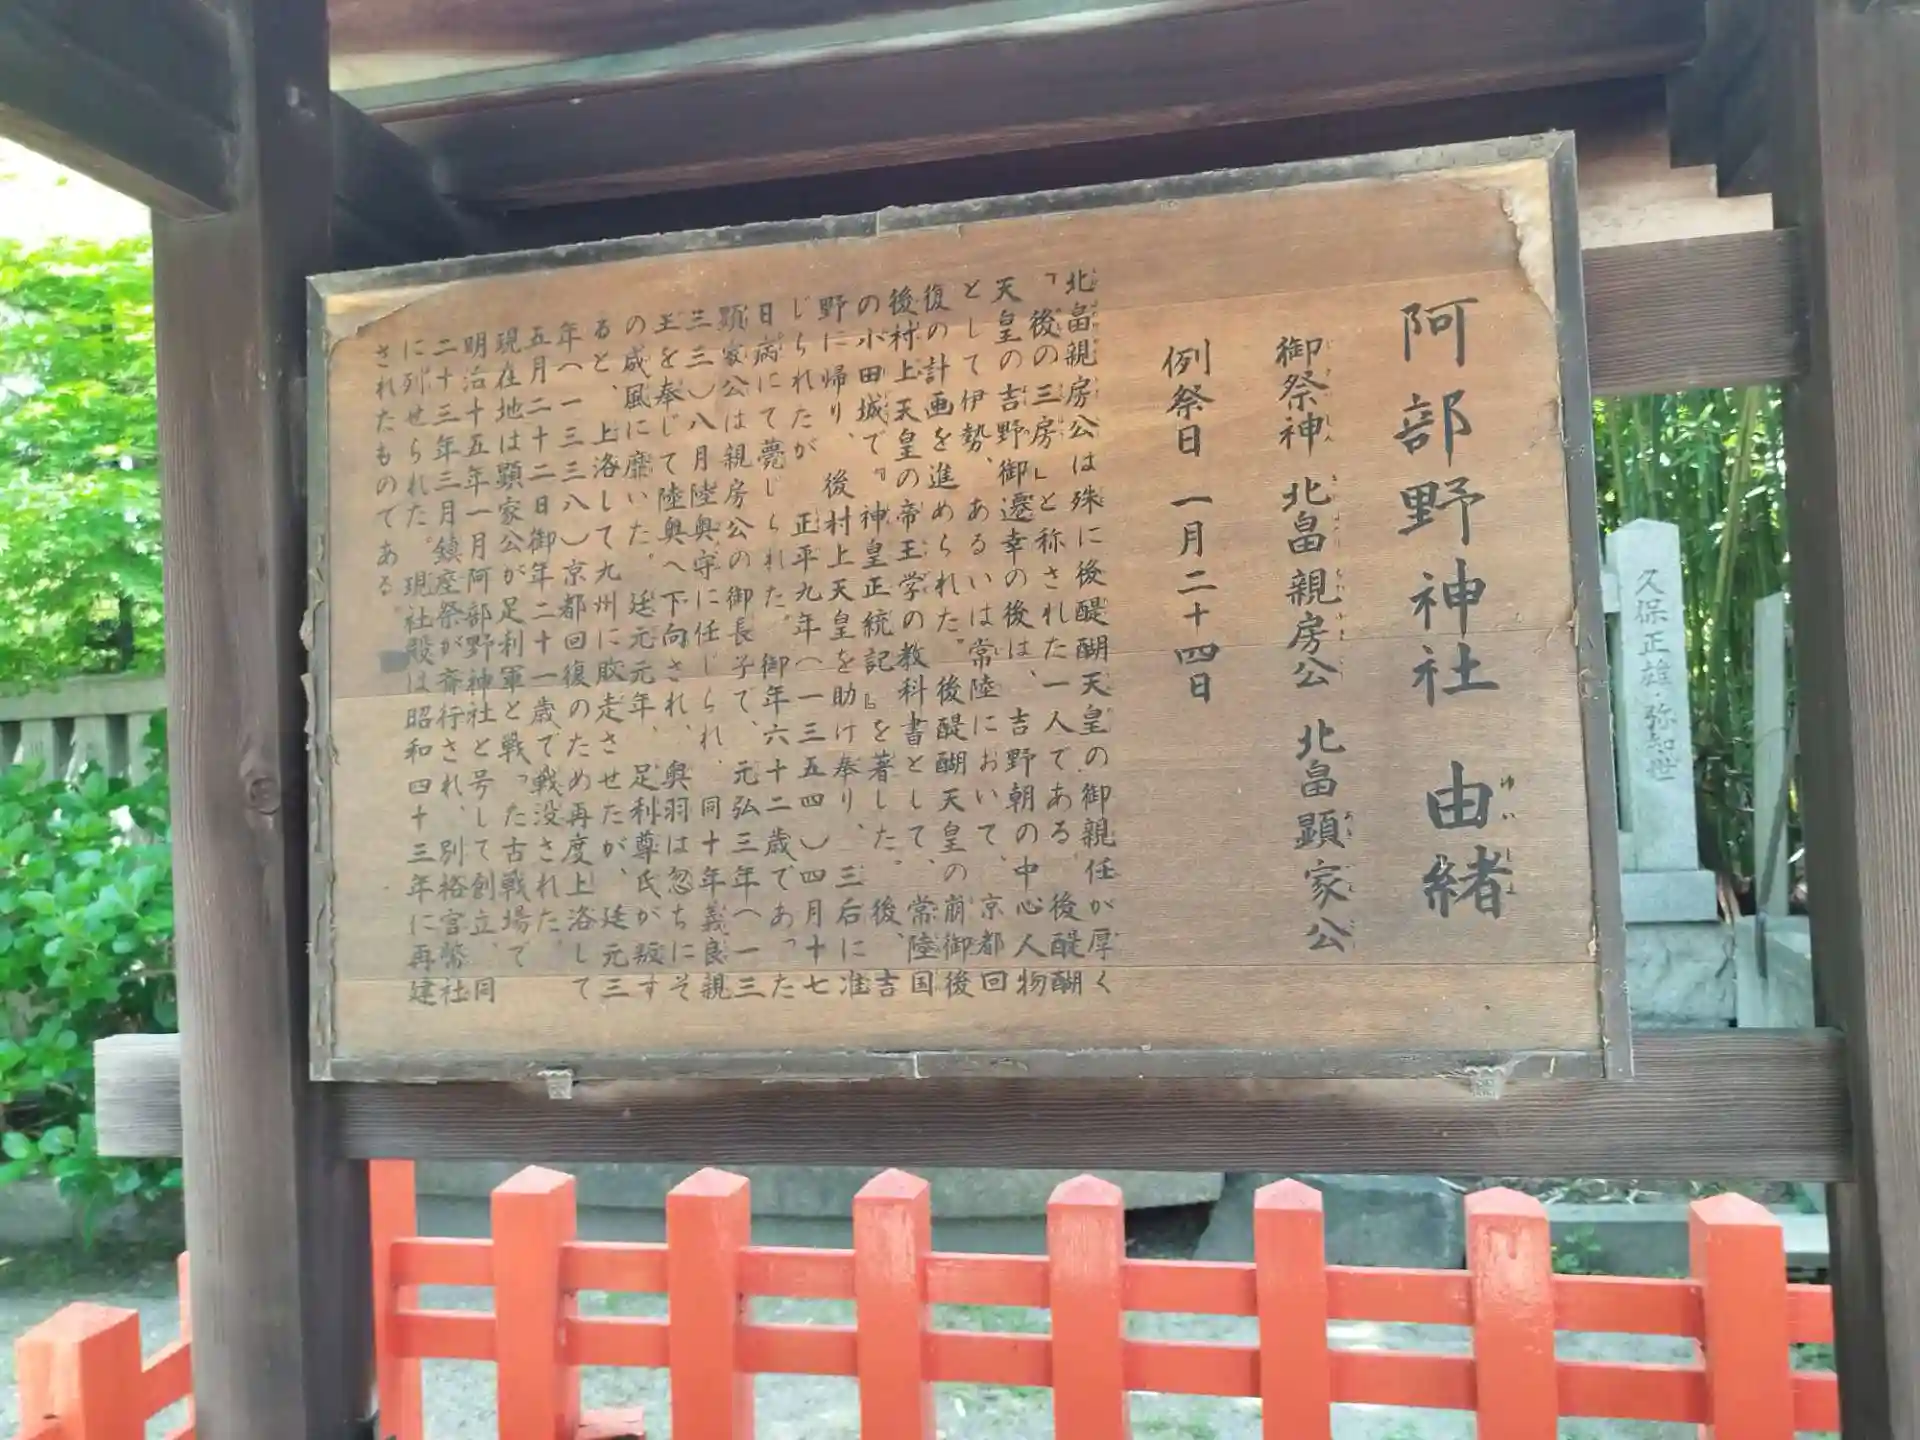 阿部野神社 由緒
御祭神 北畠親房公 北畠顕家公
例祭日 一月二十四日
北畠親房公は殊に後醍醐天皇の御親任が厚く
「後の三房」と称された一人である。後醍醐
天皇の吉野御遷幸の後は、吉野朝の中心人物
として伊勢、あるいは常陸において、京都回
復の計画を進められた。後醍醐天皇の崩御後
後村上天皇の帝王学の教科書として、常陸国
の小田城で『神皇正統記』を著した。後、吉
野に帰り、後村上天皇を助け奉り、三后に准
じられたが 正平九年(一三五四)四月十七
日病にて薨じられた。御年六十二歳であった
顕家公は親房公の御長子で、元弘三年(一三
三三)八月陸奥守に任じられ、同十年義良親
王を奉じて陸奥へ下向され、奥羽は忽ちにそ
の威風に靡いた。延元元年、足利尊氏が叛す
ると、上洛して九州に敗走させたが、延元三
年(一三三八)京都回復のため再度上洛して
五月二十二日御年二十一歳で戦没された。
現在地は顕家公が足利軍と戦った古戦場で
明治十五年一月阿部野神社と号して創立、同
二十三年三月鎮座祭が斎行され、別格官幣社
に列せられた。現社殿は昭和四十三年に再建
されたものである。
久保正雄・弥知世